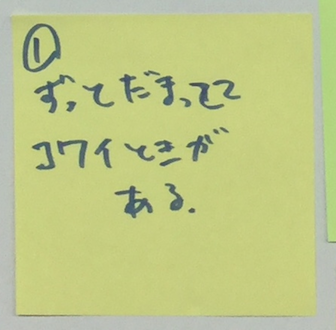 ①
ずっとだまってて
コワイときが
ある.